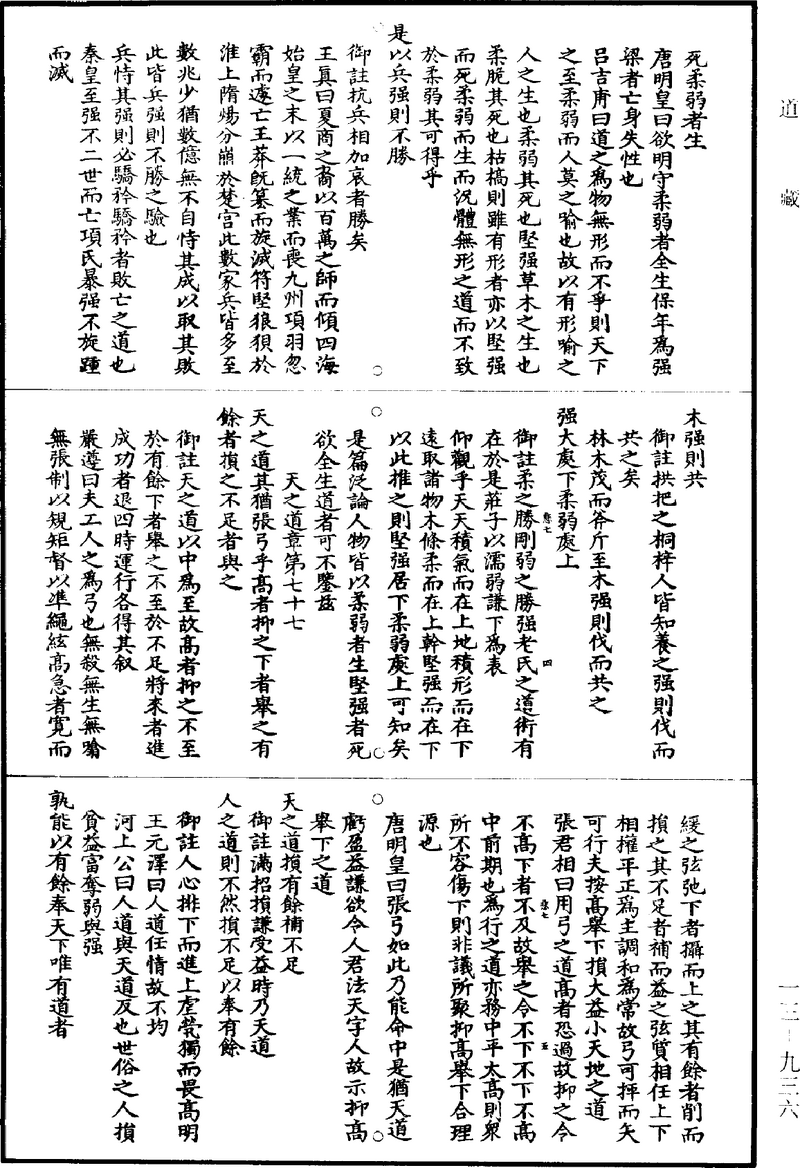 道藏
死柔弱者生
唐明皇曰欲明守柔弱者全生保年爲强
梁者亡身失性也
呂吉甫曰道之爲物無形而不爭則天下
之至柔弱而人莫之喻也故以有形喻之
人之生也柔弱其死也堅强草木之生也
柔脆其死也枯槁則雖有形者亦以堅强
而死柔弱而生而況體無形之道而不致
於柔弱其可得乎
是以兵强則不勝
御註抗兵相加哀者勝矣
王眞曰夏商之裔以百萬之師而傾四海
始皇之末以一統之業而喪九州項羽忽
霸而遽亡王莽旣篡而旋滅符堅狼狽於
淮上隋煬分崩於楚宮此數家兵皆多至
數兆少猶數億無不自恃其成以取其敗
此皆兵强則不勝之驗也
兵恃其强則必驕矜驕矜者敗亡之道也
秦皇至强不二世而亡項氏暴强不旋踵
而滅
木强則共
御註拱把之桐梓人皆知養之强則伐而
共之矣
林木茂而斧斤至木强則伐而共之
强大處下柔弱處上
御註柔之勝剛弱之勝强老氏之道術有
在於是莊子以濡弱謙下爲表
卷七
四
仰觀乎天天積氣而在上地積形而在下
遠取諸物木條柔而在上幹堅强而在下
以此推之則堅强居下柔弱處上可知矣
是篇泛論人物皆以柔弱者生堅强者死
欲全生道者可不鑒兹
天之道章第七十七
天之道其猶張弓乎高者抑之下者舉之有
餘者損之不足者與之
御註天之道以中爲至故高者抑之不至
於有餘下者舉之不至於不足將來者進
成功者退四時運行各得其叙
嚴遵曰夫工人之爲弓也無殺無生無喻
無張制以規矩督以準繩絃高急者寬而
緩之弦弛下者攝而上之其有餘者削而
損之其不足者補而益之弦質相任上下
相權平正爲主調和爲常故弓可抨而矢
可行夫按高舉下損大益小天地之道
張君相曰用弓之道高者恐過故抑之令
不高下者不及故舉之令不下不下不高
卷七
五
中前期也爲行之道亦務中平太高則衆
所不容傷下則非議所聚抑高舉下合理
源也
唐明皇曰張弓如此乃能命中是猶天道
虧盈益謙欲令人君法天字人故示抑高
舉下之道
天之道損有餘補不足
御註滿招損謙受益時乃天道
人之道則不然損不足以奉有餘
御註人心排下而進上虐煢獨而畏高明
王元澤曰人道任情故不均
河上公曰人道與天道反也世俗之人損
貧益富奪弱與强
孰能以有餘奉天下唯有道者
一三－九三六